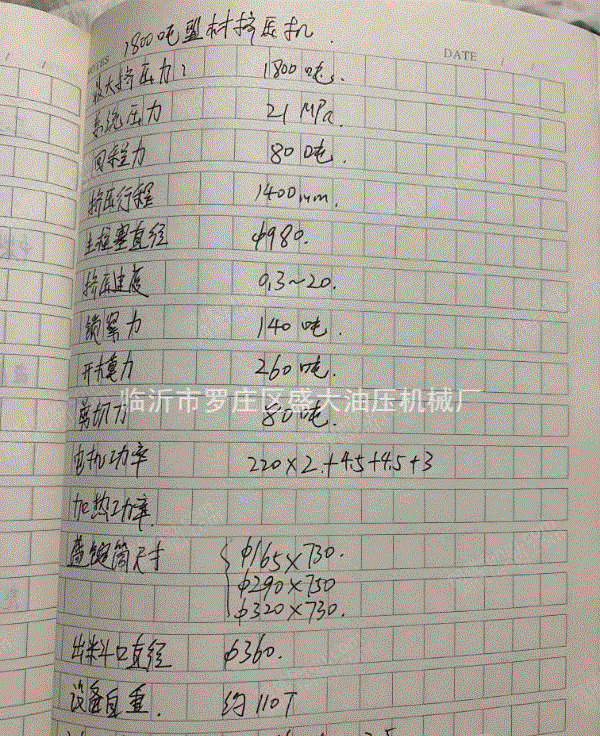 1800吨型材挤压机.
NOTES
DATE
最大挤压力: 1800吨.
系统压力 21MPa.
回程力 80吨.
挤压行程 1400mm.
主柱塞直径 φ980.
挤压速度 0.3~20.
锁紧力 140吨.
开模力 260吨.
临沂市罗庄区盛大油压机械厂
剪切力 80吨.
电机功率 220×2.+45+45+3
加热功率
盛锭筒尺寸 φ165×730.
φ290×750
φ320×730.
出料口直径 φ360.
设备自重. 约110T